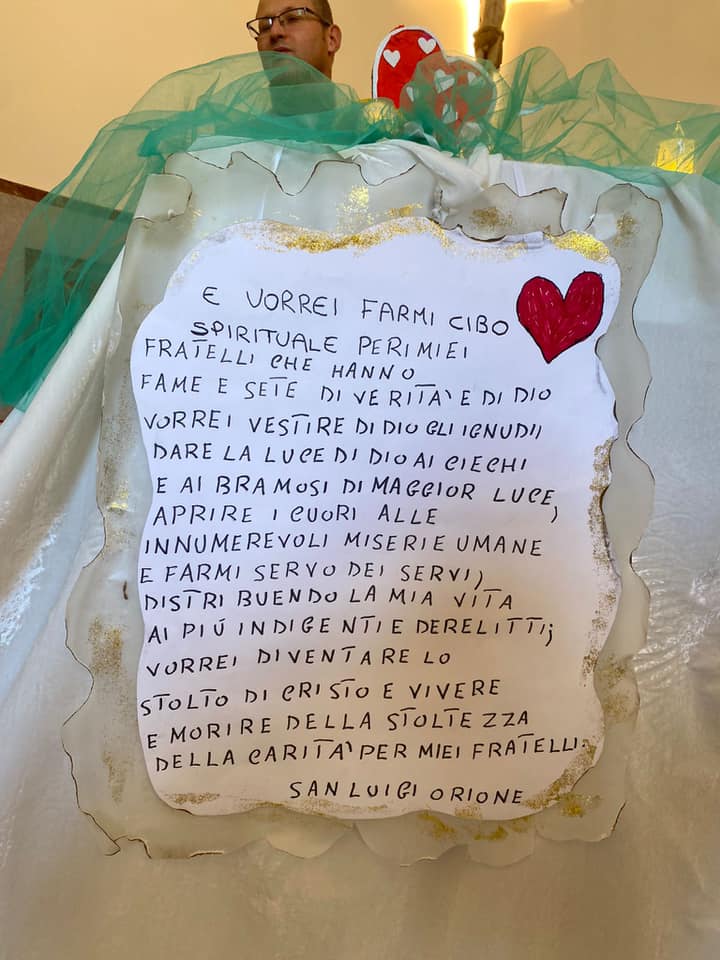 E VORREI FARMI CIBO
SPIRITUALE PER I MIEI
FRATELLI CHE HANNO
FAME E SETE DI VERITA' E DI DIO
VORREI VESTIRE DI DIO GLI IGNUDI,
DARE LA LUCE DI DIO AI CIECHI
E AI BRAMOSI DI MAGGIOR LUCE,
APRIRE I CUORI ALLE
INNUMEREVOLI MISERIE UMANE
E FARMI SERVO DEI SERVI,
DISTRIBUENDO LA MIA VITA
AI PIÚ INDIGENTI E DERELITTI;
VORREI DIVENTARE LO
STOLTO DI CRISTO E VIVERE
E MORIRE DELLA STOLTEZZA
DELLA CARITA' PER MIEI FRATELLI.
SAN LUIGI ORIONE